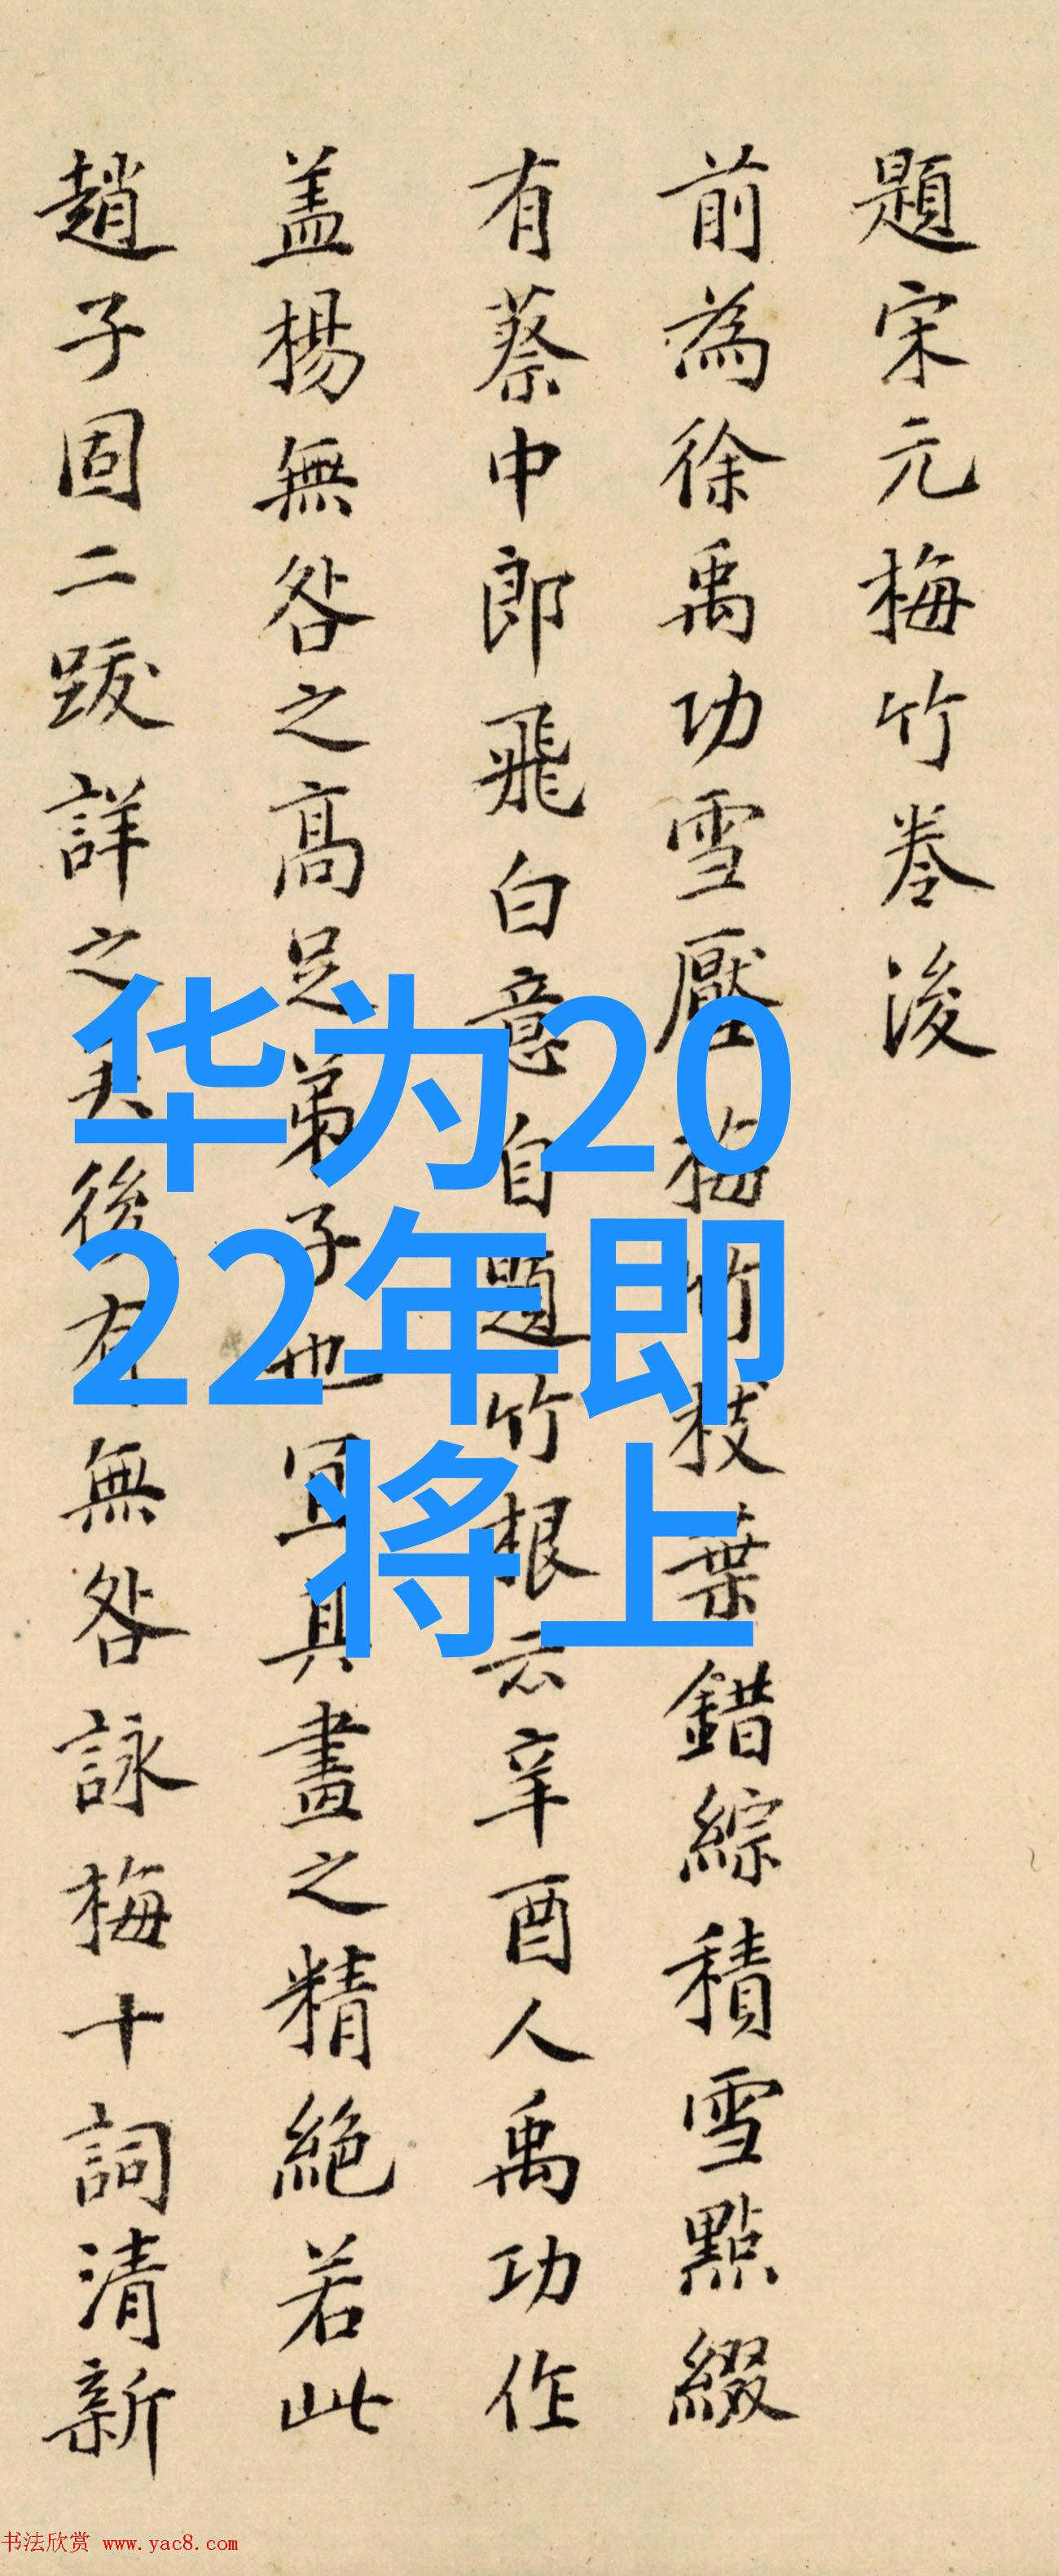 題宋元梅竹卷後
前為徐禹功雪壓梅竹枝葉錯綜積雪點綴
有蔡中郎飛白意自題竹根云辛酉人禹功作
盖楊無咎之高足弟子也宜其畫之精絕若此
趙子固二跋詳之矣後有無咎詠梅十詞清新
华为20
22年即
将上
书法欣赏 www.yac8.com